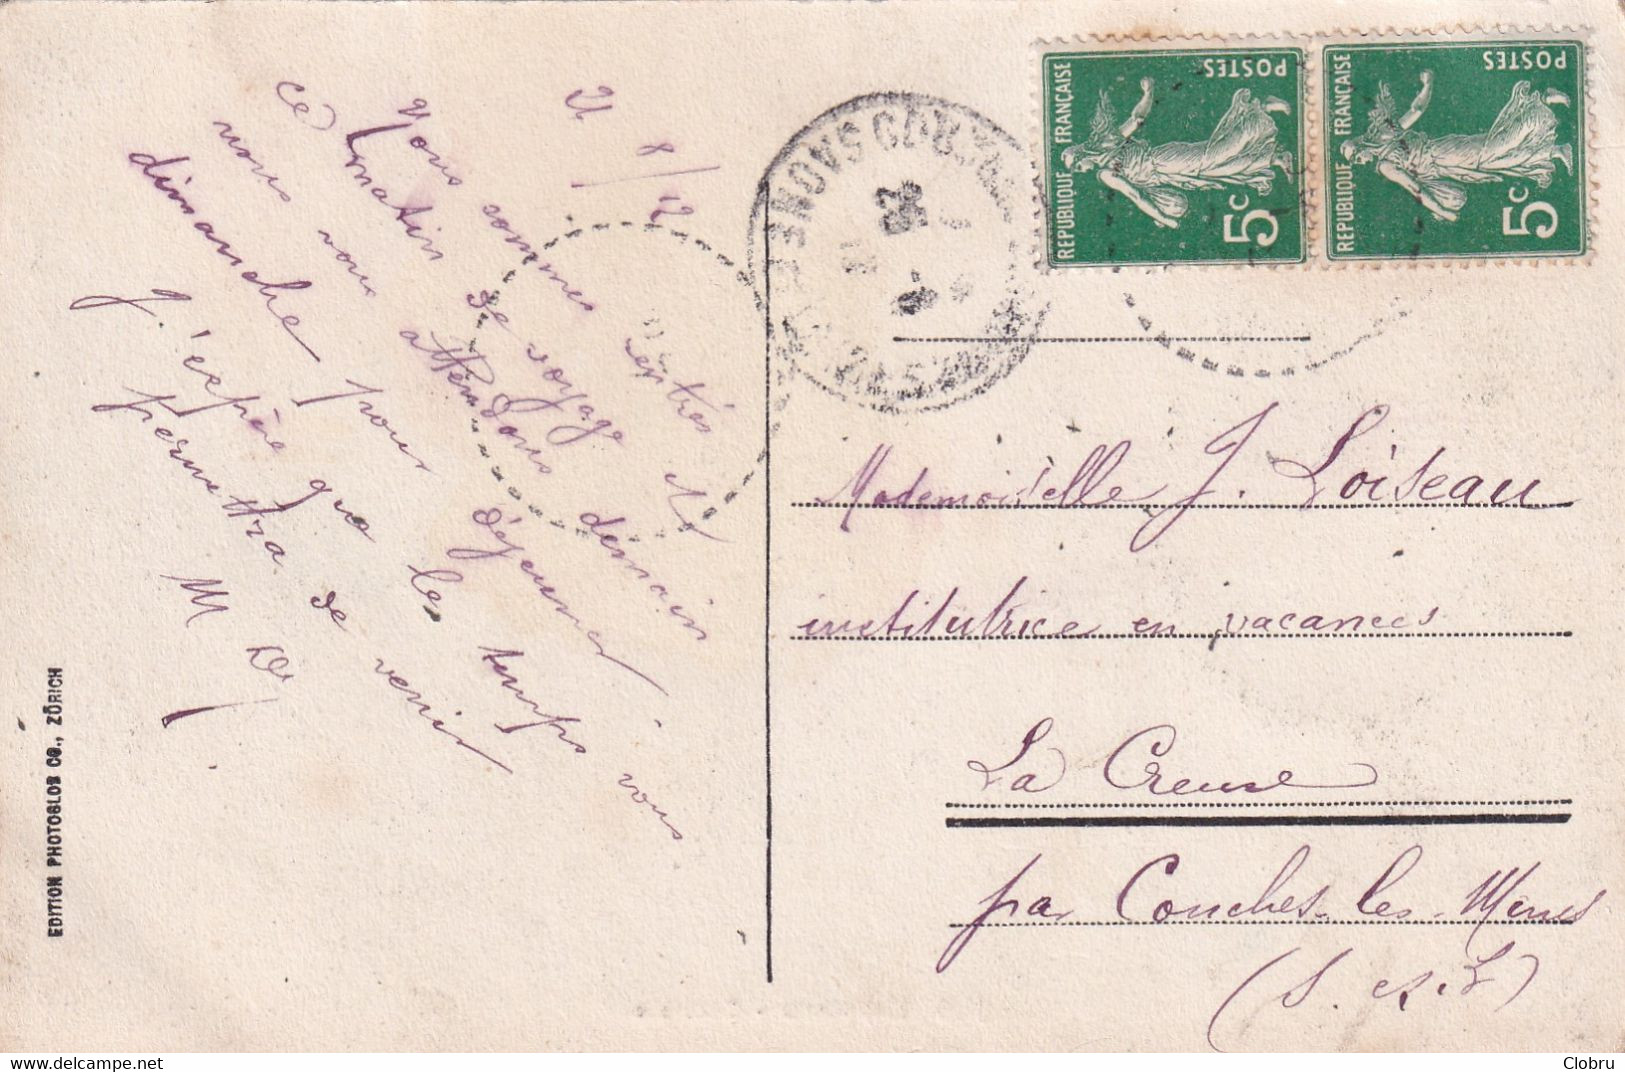 21/8/12
Nous sommes rentrés
ce matin de voyage et
nous vous attendons demain
dimanche pour déjeuner.
J'éspère que le temps vous
permettra de venir
M
EDITION PHOTOGLOB CO., ZÜRICH
REPUBLIQUE FRANÇAISE
POSTES
5c
REPUBLIQUE FRANÇAISE
POSTES
5c
Mademoiselle J. Loiseau
institutrice en vacances
La Creuse
par Couches-les-Mines
(S. et L)
Clobru